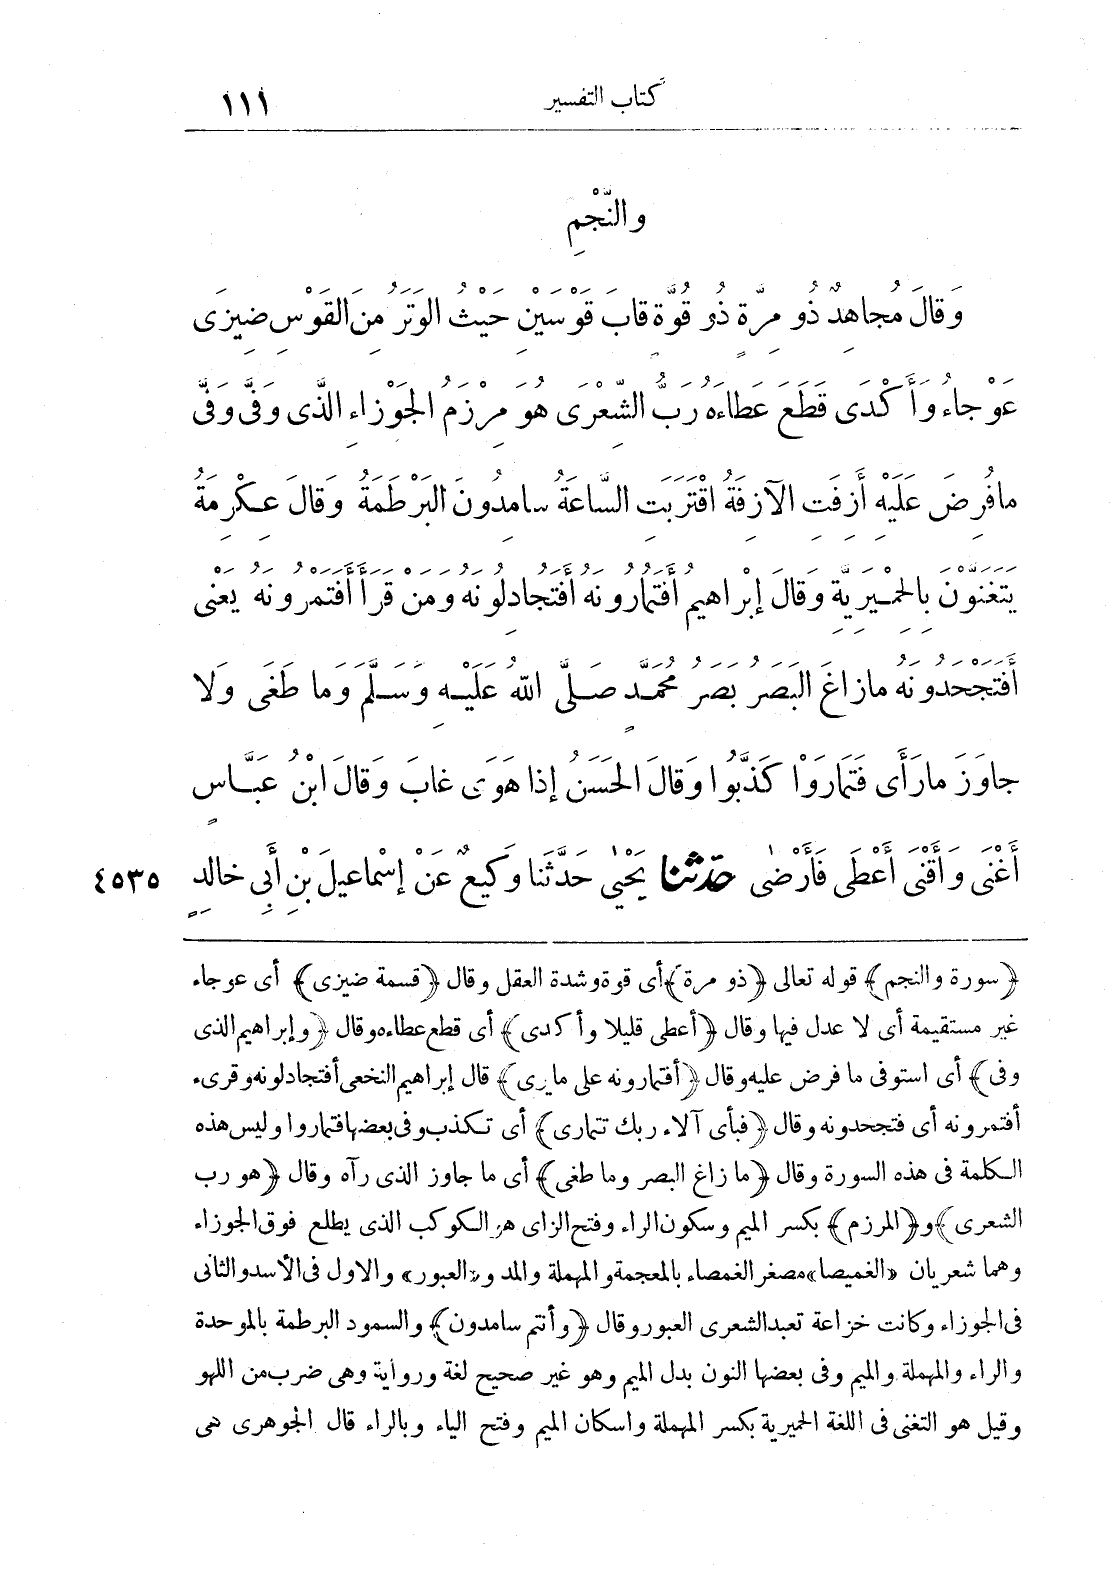 كتاب التفسير ١١١
والنَّجْمِ
وَقَالَ مُجاهِدٌ ذُو مِرَّةٍ ذُو قُوَّةٍ قابَ قَوْسَيْنِ حَيْثُ الوَتَرُ مِنَ القَوْسِ ضِيزَى
عَوْجاءُ وَأَكْدَى قَطَعَ عَطاءَهُ رَبُّ الشِّعْرَى هُوَ مِرْزَمُ الجَوْزاءِ الَّذِى وَفَّى وَفَّى
مافُرِضَ عَلَيْهِ أَزِفَتِ الآزِفَةُ اقْتَرَبَتِ السَّاعَةُ سامِدُونَ البَرْطَمَةُ وَقالَ عِكْرِمَةُ
يَتَغَنَّوْنَ بِالحِمْيَرِيَّةِ وَقالَ إِبْراهِيمُ أَفَتُمارُونَهُ أَفَتُجادِلُونَهُ وَمَنْ قَرَأَ أَفَتَمْرُونَهُ يَعْنِى
أَفَتَجْحَدُونَهُ مازاغَ البَصَرُ بَصَرُ مُحَمَّدٍ صَلَّى اللهُ عَلَيْهِ وَسَلَّمَ وَما طَغَى وَلا
جاوَزَ مارَأَى فَتَمارَوْا كَذَّبُوا وَقالَ الحَسَنُ إِذا هَوَى غابَ وَقالَ ابْنُ عَبَّاسٍ
أَغْنَى وَأَقْنَى أَعْطَى فَأَرْضَى حدّثنا يَحْيى حَدَّثَنا وَكِيعٌ عَنْ إِسْماعِيلَ بْنِ أَبِى خالِدٍ ٤٥٣٥
﴿سورة والنجم﴾ قوله تعالى ﴿ذو مرة﴾ أى قوة وشدة العقل وقال ﴿قسمة ضيزى﴾ أى عوجاء
غير مستقيمة أى لا عدل فيها وقال ﴿أعطى قليلا وأكدى﴾ أى قطع عطاءه وقال ﴿وإبراهيم الذى
وفى﴾ أى استوفى ما فرض عليه وقال ﴿أفتمارونه على مايرى﴾ قال إبراهيم النخعى أفتجادلونه وقرىء
أفتمرونه أى فتجحدونه وقال ﴿فبأى آلاء ربك تتمارى﴾ أى تكذب وفى بعضها فتماروا وليس هذه
الكلمة فى هذه السورة وقال ﴿ما زاغ البصر وما طغى﴾ أى ما جاوز الذى رآه وقال ﴿هو رب
الشعرى﴾ و﴿المرزم﴾ بكسر الميم وسكون الراء وفتح الزاى هو الكوكب الذى يطلع فوق الجوزاء
وهما شعريان «الغميصا» مصغر الغمصاء بالمعجمة والمهملة والمد و«العبور» والاول فى الأسد والثانى
فى الجوزاء وكانت خزاعة تعبد الشعرى العبور وقال ﴿وأنتم سامدون﴾ والسمود البرطمة بالموحدة
والراء والمهملة والميم وفى بعضها النون بدل الميم وهو غير صحيح لغة ورواية وهى ضرب من اللهو
وقيل هو التغنى فى اللغة الحميرية بكسر المهملة واسكان الميم وفتح الياء وبالراء قال الجوهرى هى